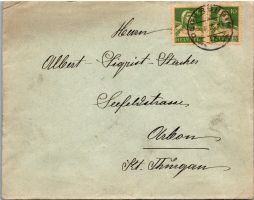 Herrn
Albert Sigrist-Stacher
Seefeldstrasse
Arbon
Kt. Thurgau